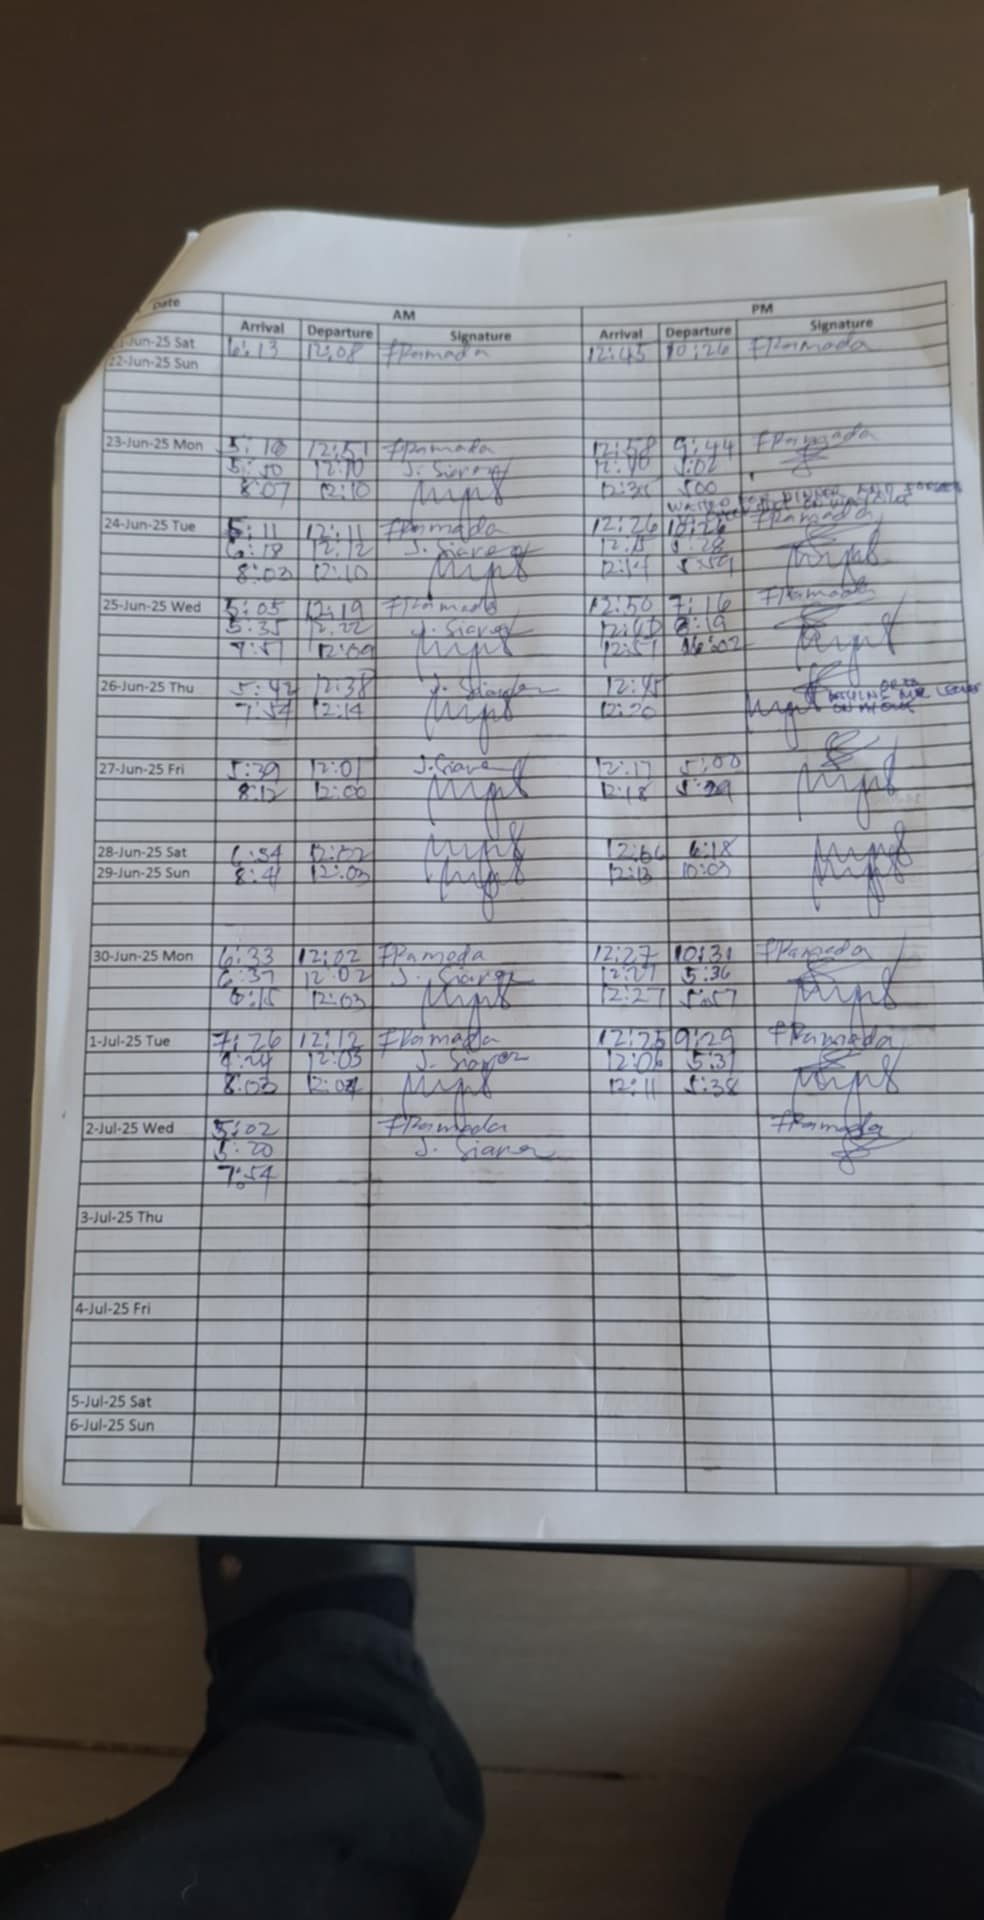 Date AM PM
Arrival Departure Signature Arrival Departure Signature
-Jun-25 Sat 6:13 12:08 FRamada 12:45 10:26 FRamada
22-Jun-25 Sun
23-Jun-25 Mon 5:10 12:51 FRamada 12:58 9:44 FRamada
5:50 12:10 J. Siarez
8:07 12:10 12:35 500
WAITED FOR DINNER AND
24-Jun-25 Tue 5:11 12:11 FRamada 12:26 10:26 FRamada
6:18 12:12 J. Siarez 12:15 5:28
8:03 12:10 12:14 5:59
25-Jun-25 Wed 5:05 12:19 FRamada 12:50 7:16 FRamada
5:35 12:22 J. Siarez
7:51 12:09 12:51 16:02
26-Jun-25 Thu 5:42 12:38 12:45
7:54 12:14 12:20
27-Jun-25 Fri 5:39 12:01 J. Siarez 12:17 5:00
8:12 12:00 12:18
28-Jun-25 Sat 6:54 12:02 6:18
29-Jun-25 Sun 8:41 12:03 12:13 10:03
30-Jun-25 Mon 6:33 12:02 FRamada 12:27 10:31 FRamada
6:37 12:02 J. Siarez 12:27 5:36
12:03 12:27 5:57
1-Jul-25 Tue 7:26 12:12 FRamada 12:25 9:29 FRamada
12:05 J. Siarez 12:06 5:31
8:03 12:04 12:11 5:38
2-Jul-25 Wed 5:02 FRamada FRamada
5:20 J. Siarez
7:54
3-Jul-25 Thu
4-Jul-25 Fri
5-Jul-25 Sat
6-Jul-25 Sun